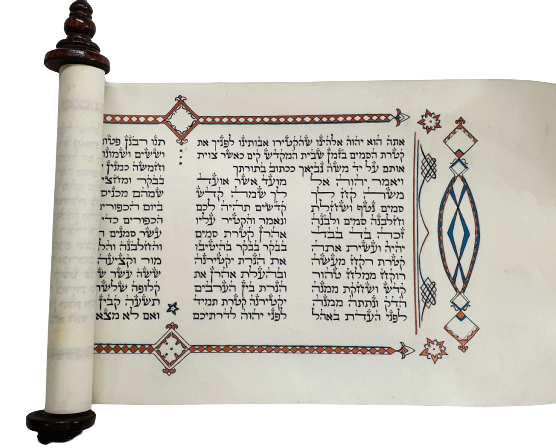 אתה הוא יהוה אלהינו שהקטירו אבותינו לפניך את
קטרת הסמים בזמן שבית המקדש קים כאשר צוית
אותם על יד משה נביאך ככתוב בתורתך
ויאמר יהוה אל
משה קח לך
סמים נטף ושחלת
וחלבנה סמים ולבנה
זכה בד בבד
יהיה ועשית אתה
קטרת רקח מעשה
רוקח ממלח טהור
קדש ושחקת ממנה
הדק ונתתה ממנה
לפני העדת באהל
מועד אשר אועד
לך שמה קדש
קדשים תהיה לכם
ונאמר והקטיר עליו
אהרן קטרת סמים
בבקר בבקר בהיטיבו
את הנרת יקטירנה
ובהעלת אהרן את
הנרת בין הערבים
יקטירנה קטרת תמיד
לפני יהוה לדרתיכם
תנו רבנן פטום
וששים ושמונה
וחמשה כמנין
בבקר
שמהם מכניס
ביום הכפורים
הכפורים כדי
עשר סמנים
והחלבנה
מור וקציעה
ששה עשר
קלופה
תשעה קבין
ואם לא מצא